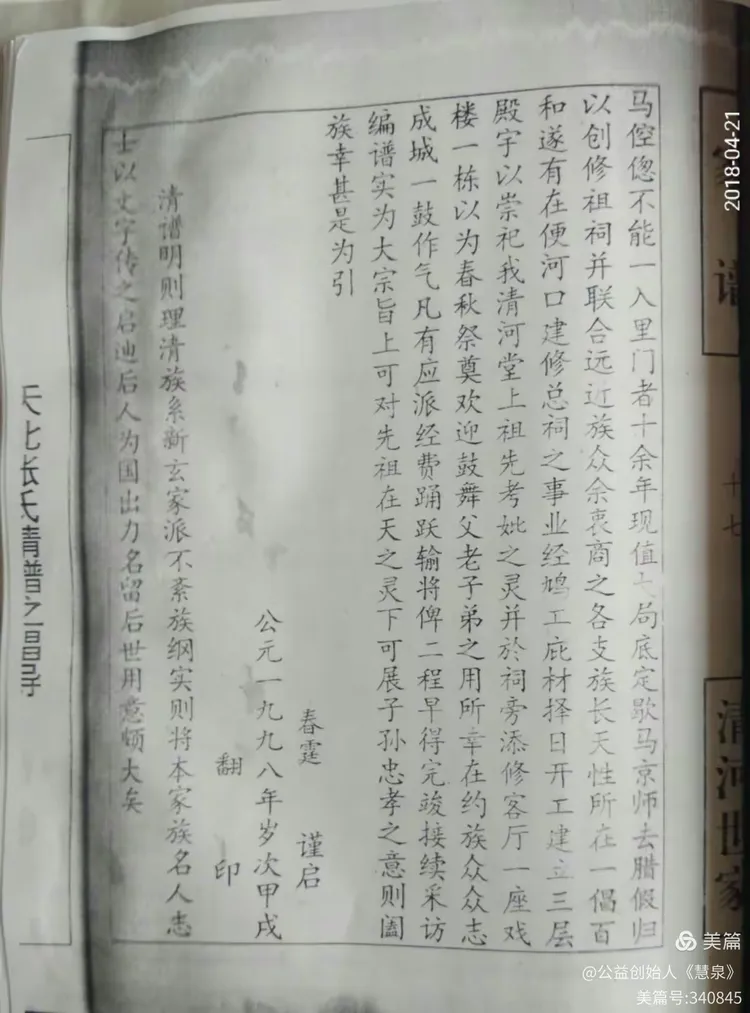 家谱
十七
清河世家
马倥偬不能一入里门者十余年现值大局底定歇马京师去腊假归
以创修祖祠并联合远近族众余衷商之各支族长天性所在一倡百
和遂有在便河口建修总祠之事业经鸠工庇材择日开工建立三层
殿宇以崇祀我清河堂上祖先考妣之灵并於祠旁添修客厅一座戏
楼一栋以为春秋祭奠欢迎鼓舞父老子弟之用所幸在约族众众志
成城一鼓作气凡有应派经费踊跃输将俾二程早得完竣接续采访
编谱实为大宗旨上可对先祖在天之灵下可展子孙忠孝之意则阖
族幸甚是为引
春霆 谨启
公元一九九八年岁次甲戌
翻印
清谱明则理清族系新玄家派不紊族纲实则将本家族名人志
士以文字传之启迪后人为国出力名留后世用意颇大矣
张氏清谱之
2018-04-21
美篇
@公益创始人《慧泉》
美篇号:340845